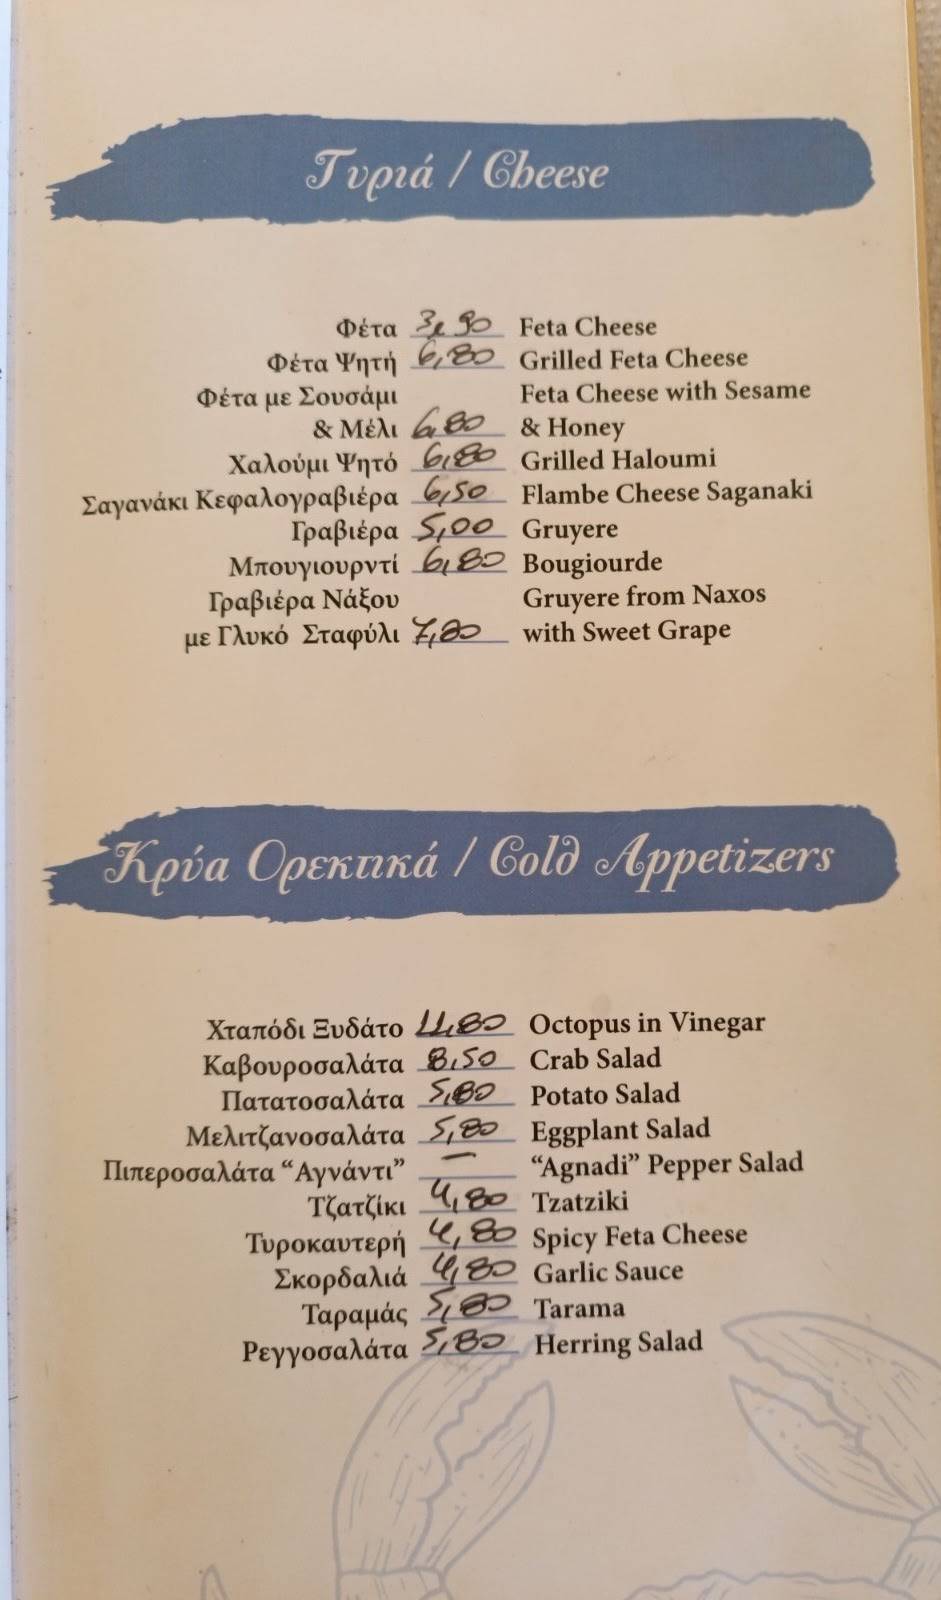 Τυριά / Cheese
Φέτα 3,90 Feta Cheese
Φέτα Ψητή 6,80 Grilled Feta Cheese
Φέτα με Σουσάμι Feta Cheese with Sesame
& Μέλι 6,80 & Honey
Χαλούμι Ψητό 6,80 Grilled Haloumi
Σαγανάκι Κεφαλογραβιέρα 6,50 Flambe Cheese Saganaki
Γραβιέρα 5,00 Gruyere
Μπουγιουρντί 6,80 Bougiourde
Γραβιέρα Νάξου Gruyere from Naxos
με Γλυκό Σταφύλι with Sweet Grape
Κρύα Ορεκτικά / Cold Appetizers
Χταπόδι Ξυδάτο 11,80 Octopus in Vinegar
Καβουροσαλάτα 8,50 Crab Salad
Πατατοσαλάτα 5,80 Potato Salad
Μελιτζανοσαλάτα 5,80 Eggplant Salad
Πιπεροσαλάτα “Αγνάντι” — “Agnadi” Pepper Salad
Τζατζίκι 4,80 Tzatziki
Τυροκαυτερή 4,80 Spicy Feta Cheese
Σκορδαλιά 4,80 Garlic Sauce
Ταραμάς 5,80 Tarama
Ρεγγοσαλάτα 5,80 Herring Salad